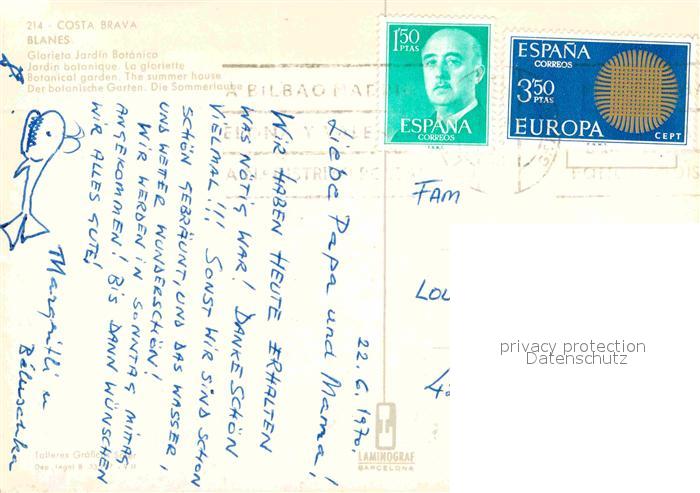 214 - COSTA BRAVA
BLANES
Glorieta Jardín Botánico
Jardin botanique. La gloriette
Botanical garden. The summer house
Der botanische Garten. Die Sommerlaube
1'50
PTAS
ESPAÑA
CORREOS
F.N.M.T.
ESPAÑA
CORREOS
3'50
PTAS
EUROPA
CEPT
F.N.M.T.
A BILBAO
22.6.1970.
Liebe Papa und Mama,!
WIR HABEN HEUTE ERHALTEN
WAS NÖTIG WAR! DANKESCHÖN
VIELMAL!!! SONST WIR SIND SCHON
SCHÖN GEBRÄUNT, UND DAS WASSER,
UND WETER WUNDERSCHÖN!
WIR WERDEN IN SONNTAG MITAG
ANGEKOMMEN! BIS DANN WÜNSCHEN
WIR ALLES GUTE!
Margritli u
FAM
LOU
privacy protection
Datenschutz
Talleres Gráficos
Dep. legal B.
LAMINOGRAF
BARCELONA